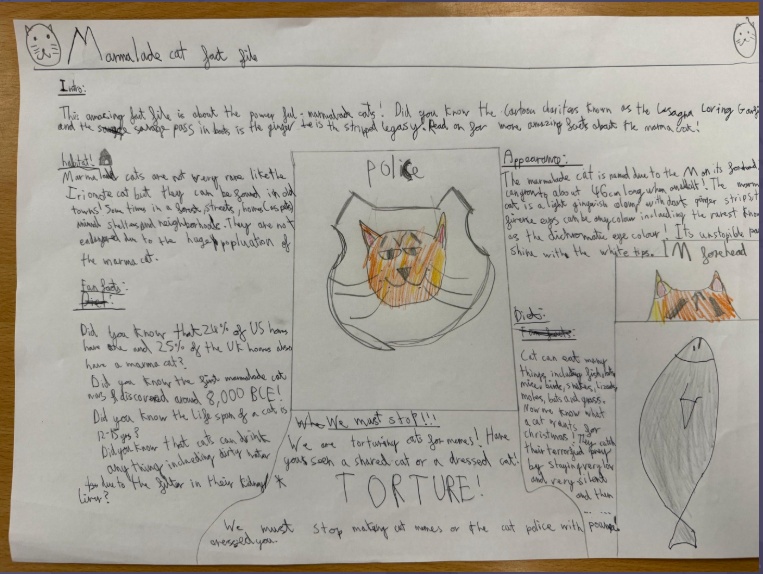 Marmalade cat fact file
Intro:
This amazing fact file is about the power ful marmalade cats! Did you know the cartoon known as the Lasagna Loving
and the savage pass in boots is the ginger he is the stripped legasy. Read on for more amazing facts about the marma cat!
habitat!
Marmalade cats are not very rare like the
Iriomote cat but they can be found in old
towns! Some times in a forest, streets, homes
animal shelters and neighborhoods. They are not
due to the huge popluation of
the marma cat.
Fun facts:
Did you know that 24% of US homes
have one and 25% of the UK homes also
have a marma cat?
Did you know the first marmalade cat
was discovered around 8,000 BCE!
Did you know the life span of a cat is
12-15 yrs?
Did you know that cats can drink
any thing including dirty water
due to the filter in their kidney
liver?
Police
We must stop!!!
We are torturing cats for memes! Have
you seen a shared cat or a dressed cat!
TORTURE!
We must stop making cat memes or the cat police with
aressed you.
Appearance:
The marmalade cat is named due to the M on its forehead
about 46cm long when! The
cat is a light gingurish along with dark ginger strips,
eyes can be any colour including the rarest
as the dichromatic eye colour! Its
shine with the white tips.
M forehead
Diets:
Cat can eat many
things including fish, rats,
mice, birds, snakes,
moles, bats and grass.
Now we know what
a cat wants for
christmas! They catch
their terrorfyed prey
by staying very low
and very silent
and then
... ...